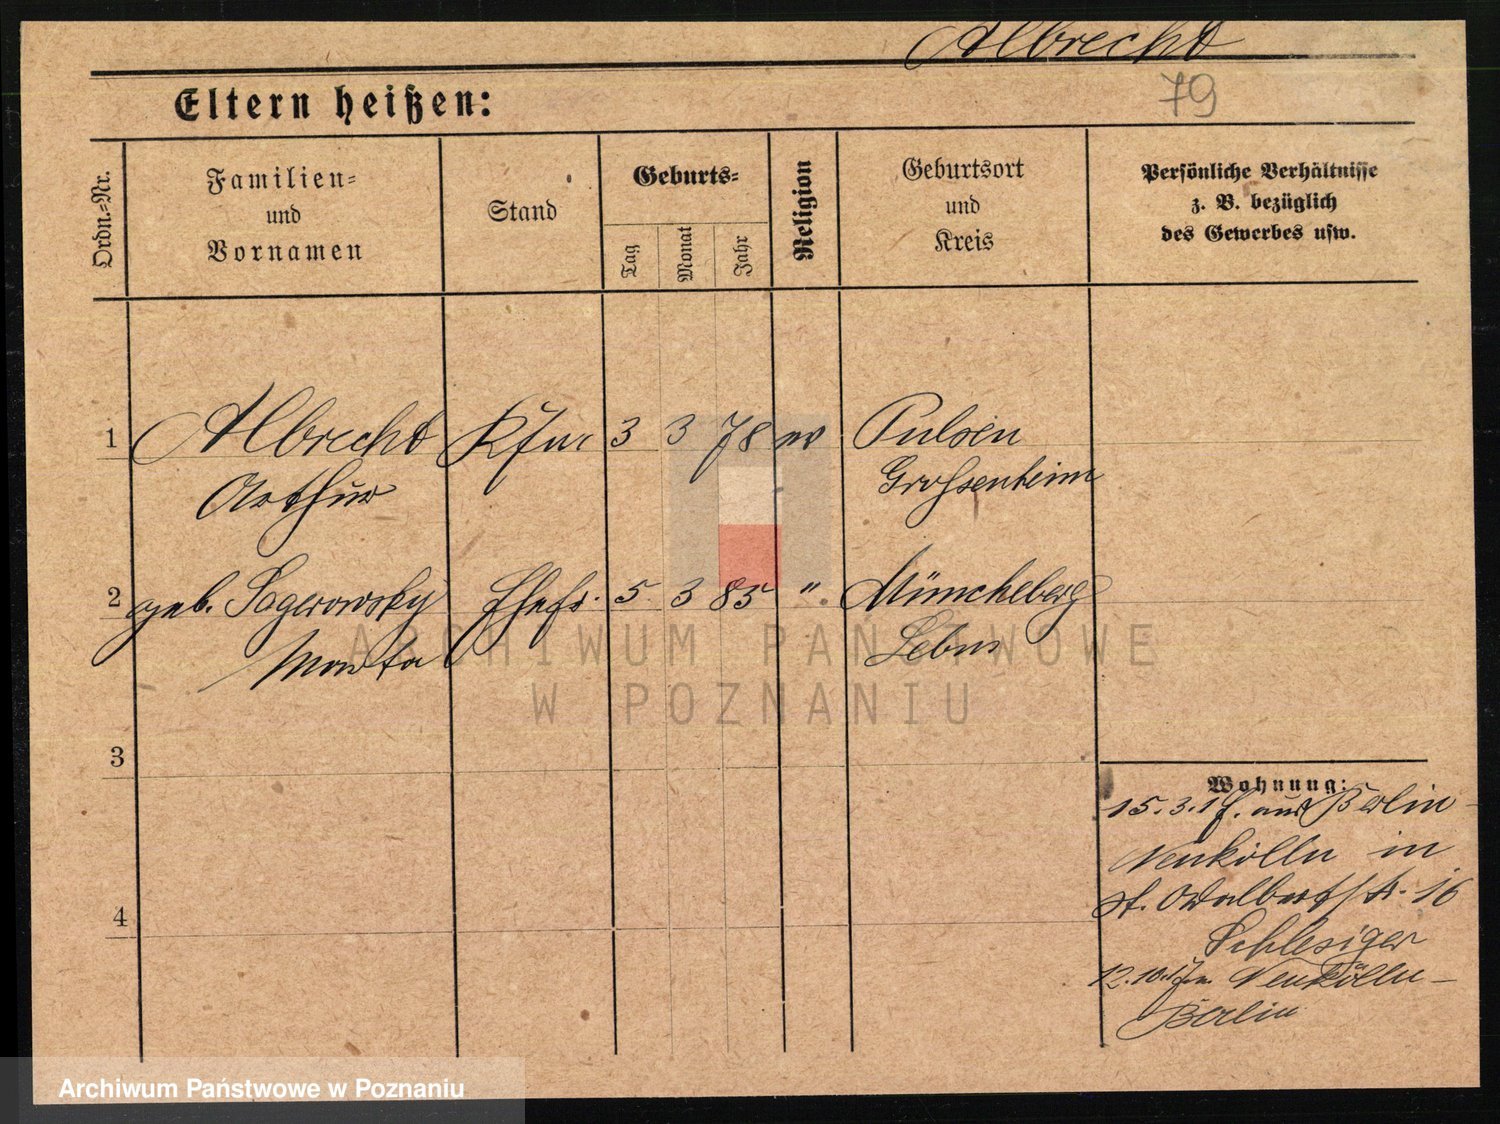 Albrecht
79
Eltern heißen:
Ordn.-Nr.
Familien-
und
Vornamen
Stand
Geburts-
Tag
Monat
Jahr
Religion
Geburtsort
und
Kreis
Persönliche Verhältnisse
z. B. bezüglich
des Gewerbes usw.
1 Albrecht Kfm 3 3 78 ev Pulsen
Arthur Grossenheim
2 geb. Sagerowsky Ehefr. 5 3 85 " Müncheberg
Marta Lebus
ARCHIWUM PAŃSTWOWE
W POZNANIU
3
4
Wohnung:
15.3.17. aus Berlin-
Neukölln in
St. Adalbertstr. 16
Schlesiger
12.10.17 n. Neukölln-
Berlin
Archiwum Państwowe w Poznaniu